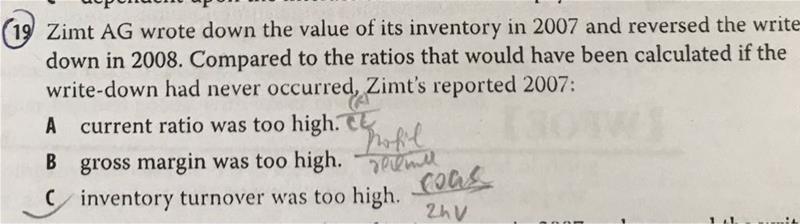 19 Zimt AG wrote down the value of its inventory in 2007 and reversed the write
down in 2008. Compared to the ratios that would have been calculated if the
write-down had never occurred, Zimt's reported 2007:
A current ratio was too high. CA
CL
B gross margin was too high. profit
revenue
C inventory turnover was too high. COGS
Inv